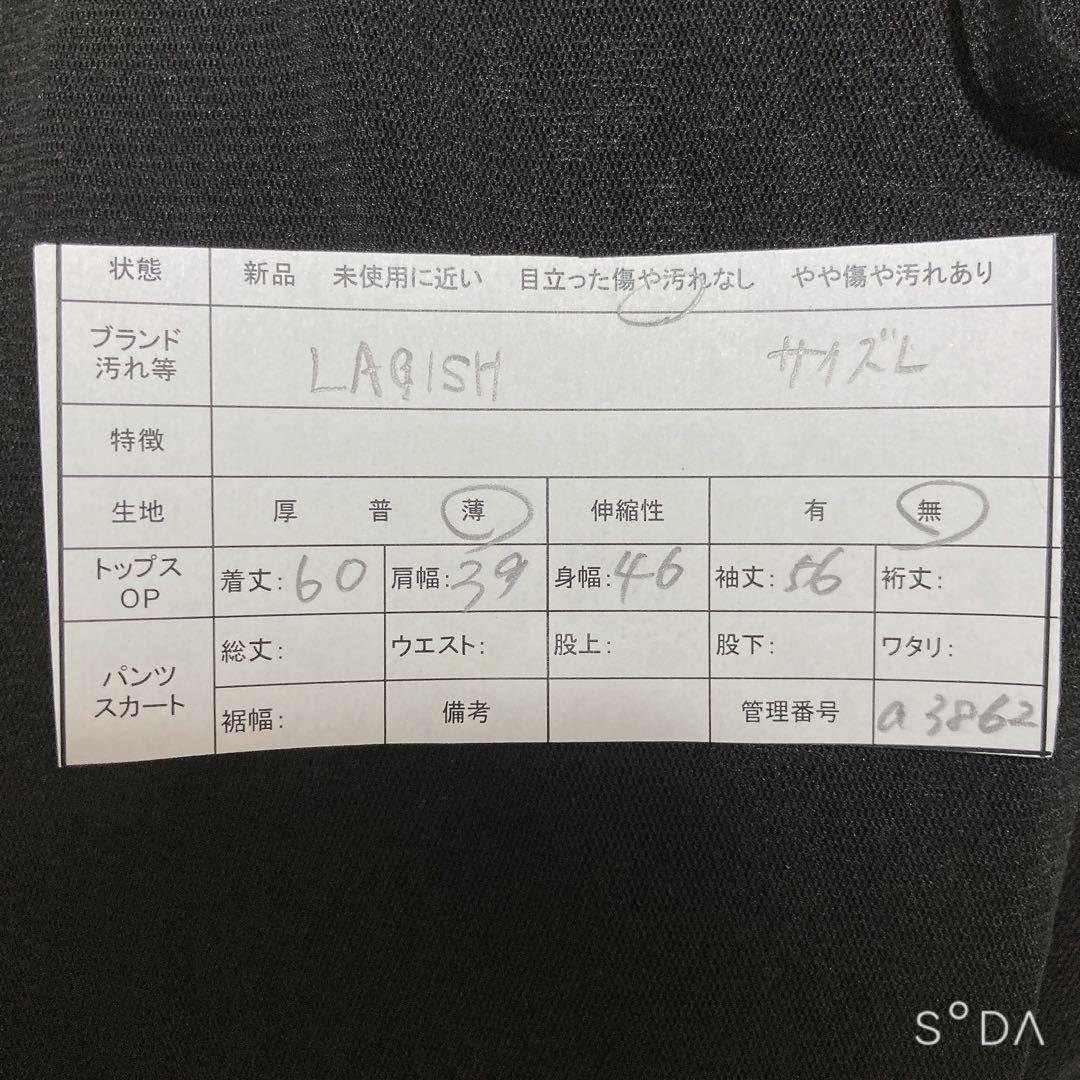 状態 新品 未使用に近い 目立った傷や汚れなし やや傷や汚れあり
ブランド
汚れ等 LAGISH サイズL
特徴
生地 厚 普 薄 伸縮性 有 無
トップス
OP 着丈:60 肩幅:39 身幅:46 袖丈:56 裄丈:
パンツ
スカート 総丈: ウエスト: 股上: 股下: ワタリ:
裾幅: 備考 管理番号 a3862
SODA